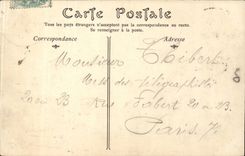 Carte Postale
Tous les pays étrangers n'acceptent pas la correspondance au recto.
Se renseigner à la poste.
Correspondance
Adresse
Monsieur Thibert
des télégraphistes
Rue Fabert 20 23
Paris 7e